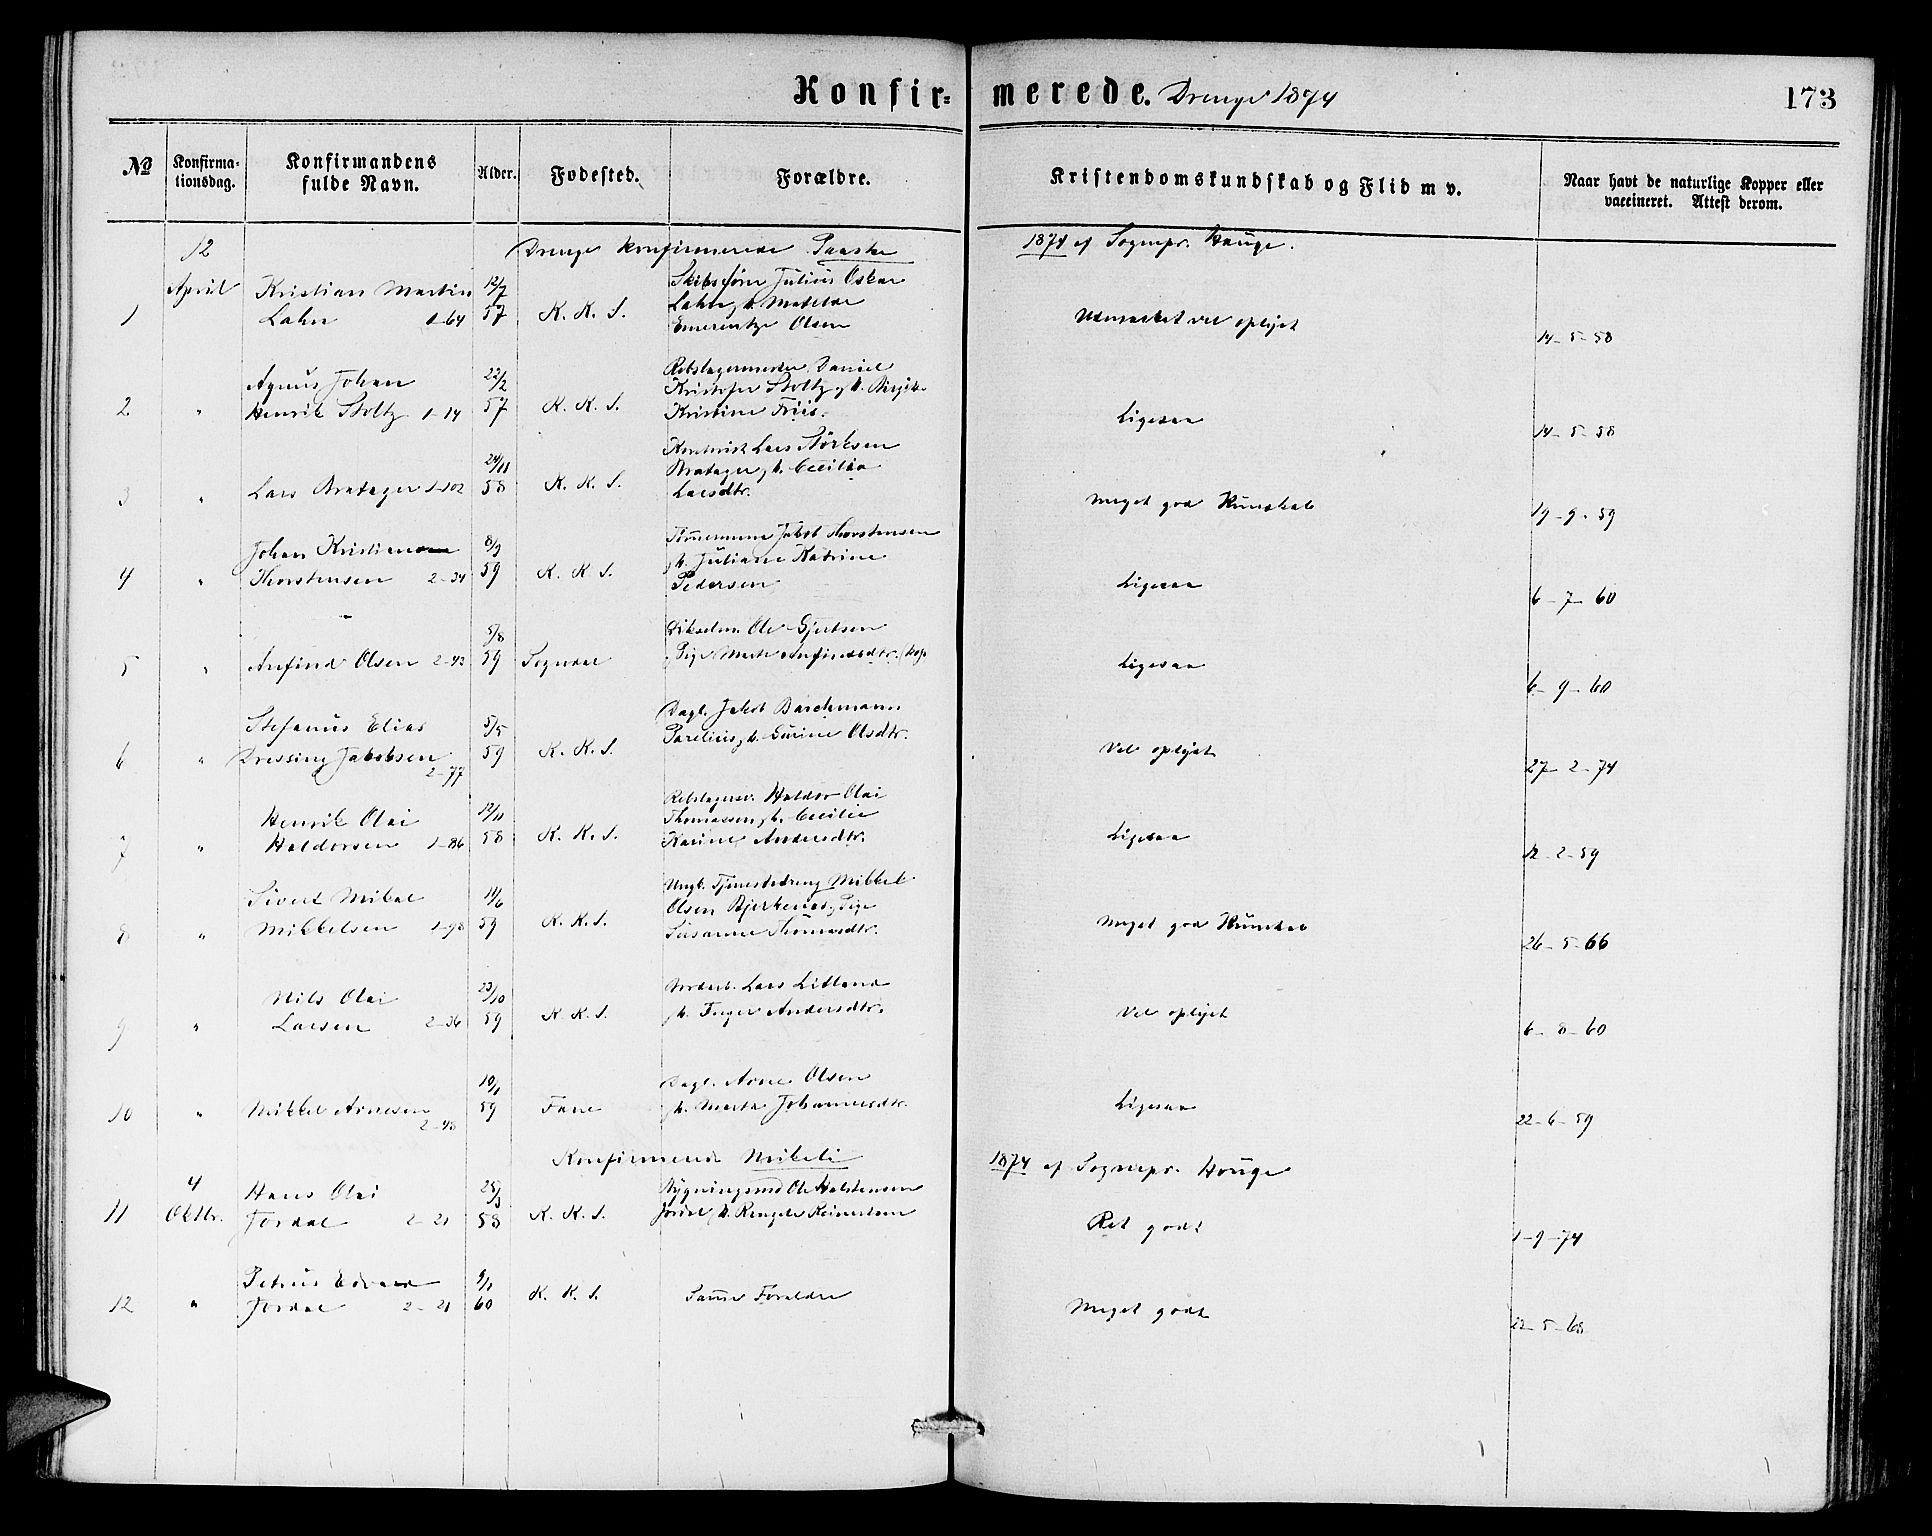 Konfirmerede. Drenge 1874
173
No
Konfirma-
tionsdag.
Konfirmandens
fulde Navn.
Alder.
Fødested.
Forældre.
Kristendomskundskab og Flid m v.
Naar havt de naturlige Kopper eller
vaccineret. Attest derom.
12 Drenge konfirmerede Paaske 1874 af Sognepr. Hauge.
April Kristian Martin 12/7 Skibsfører Julius Oskar
1 Lahn 1-64 57 K. K. S. Lahn, h. Matilde Udmærket vel oplyst 14-5-58
Emerentze Olsen
Agnus Johan 22/2 Rebslagermester Daniel
Kristofer Stoltz, h. Birgitte
2 " Henrik Stoltz 1-14 57 K. K. S. Kristine Friis. Ligesaa 14-5-58
24/11 Lars Størksen
Bratager, h. Cecilia
3 " Lars Bratager 1-102 58 K. K. S. Larsdtr. Meget god Kunskab 19-9-59
Johan Kristian 8/9 Tømmermn Jakob Thorstensen
h. Juliane Katrine
4 " Thorstensen 2-34 59 K. K. S. Pedersen Ligesaa 6-7-60
5/8 Ole Gjertsen
5 " Anfind Olsen 2-43 59 Sogndal Pige Marte Anfindsdtr. Ligesaa 6-9-60
Stefanus Elias 5/5 Dagl. Jakob Barchmann
6 " Dressing Jakobsen 59 K. K. S. Parelius, h. Surine Olsdtr. Vel oplyst 27-2-74
2-77
Henrik Olai 12/11 Rebslagersv. Haldor Olai
Thomassen, h. Cecilie
7 " Haldorsen 1-86 58 K. K. S. Karine Andersdtr. Ligesaa 12-2-59
Sivert Mikal 11/6 Ungk. Tjenestedreng Mikkel
Olsen Bjerkenæs, Pige
8 " Mikkelsen 1-98 59 K. K. S. Susanne Thomasdtr. Meget god Kunskab 26-5-66
Nils Olai 23/10 Lars Litland
9 " Larsen 2-36 59 K. K. S. h. Inger Andersdtr. Vel oplyst 6-8-60
10/1 Dagl. Arne Olsen
10 " Mikkel Arnesen 59 Fane h. Marta Johannesdtr. Ligesaa 22-6-59
2-48
Konfirmerede Mikeli 1874 af Sognepr. Hauge
4 Hans Olai 25/3 Bygningssnd Ole Halstensen
11 Oktbr. Jordal 2-21 58 K. K. S. Jordal, h. Rengele Reinertsen Ret godt 1-9-74
Petrus Edvard 9/1
12 " Jordal 2-21 60 K. K. S. Samme Forældre Meget godt 12-5-68